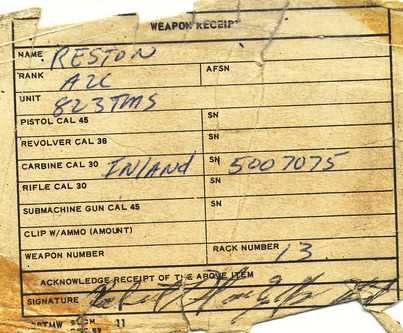 WEAPON RECEIPT
NAME RESTON
RANK A2C AFSN
UNIT 823TMS
PISTOL CAL 45 SN
REVOLVER CAL 38 SN
CARBINE CAL 30 INlANd SN 5007075
RIFLE CAL 30 SN
SUBMACHINE GUN CAL 45 SN
CLIP W/AMMO (AMOUNT)
WEAPON NUMBER RACK NUMBER 13
ACKNOWLEDGE RECEIPT OF THE ABOVE ITEM
SIGNATURE
11